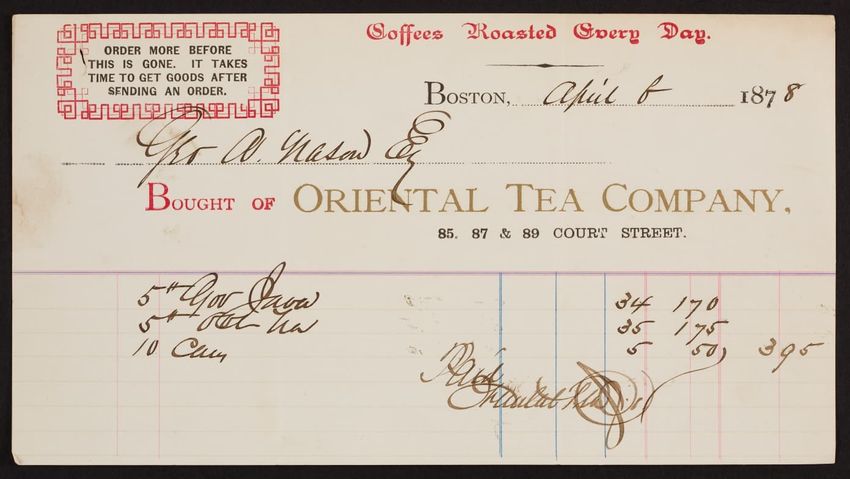 ORDER MORE BEFORE
THIS IS GONE. IT TAKES
TIME TO GET GOODS AFTER
SENDING AN ORDER.
Coffees Roasted Every Day.
BOSTON, April 6 1878
Geo W. Nason Esq
BOUGHT OF ORIENTAL TEA COMPANY,
85. 87 & 89 COURT STREET.
5# Gov Java 34 170
5# 35 175
10 Cans 5 50) 395
Paid
Oriental Tea Co